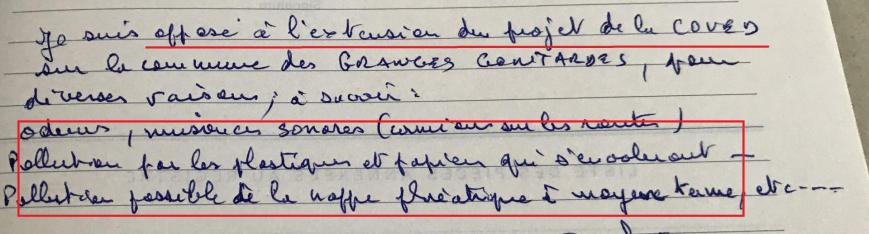 Je suis opposé à l'extension du projet de la COVED
sur la commune des GRANGES GONTARDES, pour
diverses raisons, à savoir :
odeurs, nuisances sonores (camions sur les routes)
Pollution par les plastiques et papiers qui s'envoleront —
Pollution possible de la nappe phréatique à moyen terme, etc----